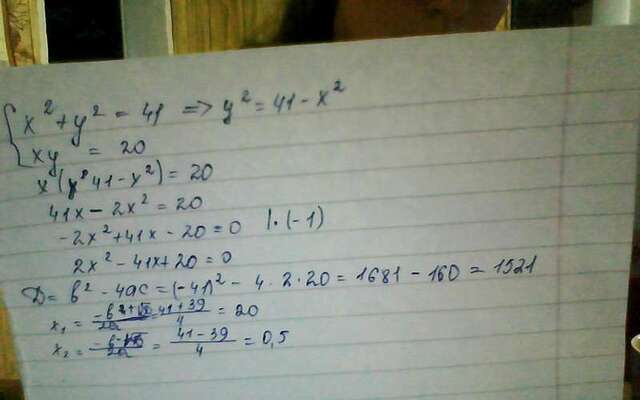 { x² + y² = 41 => y² = 41 - x²
xy = 20
x(41 - x²) = 20
41x - 2x² = 20
-2x² + 41x - 20 = 0 |·(-1)
2x² - 41x + 20 = 0
D = b² - 4ac = (-41)² - 4·2·20 = 1681 - 160 = 1521
x₁ = = 41 + 39 / 4 = 20
x₂ = = 41 - 39 / 4 = 0,5